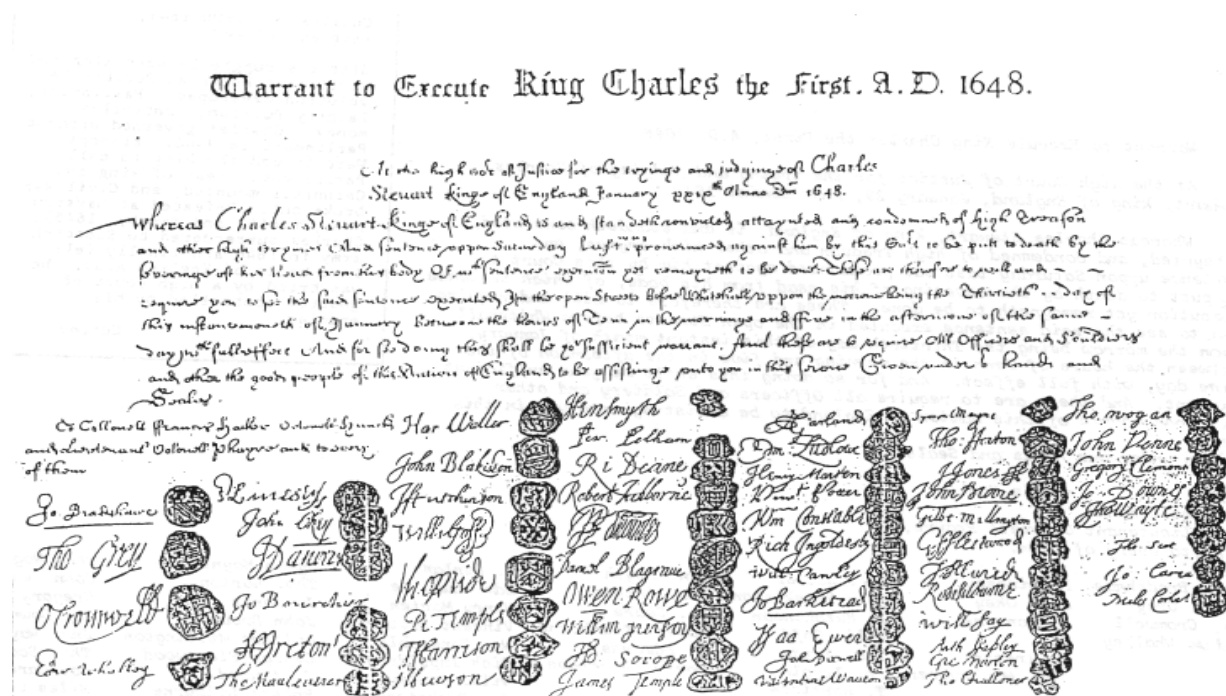 Warrant to Execute King Charles the First. A.D. 1648.
At the high Cort of Justice for the tryinge and judginge of Charles
Steuart kinge of England January xxixth Anno Dni 1648.
Whereas Charles Steuart kinge of England is and standeth convicted attaynted and condemned of high Treason
and other high Crymes And sentence uppon Saturday last was pronounced against him by this Cort to be putt to death by the
severinge of his head from his body Of wch sentence execucon yet remayneth to be done These are therefore to will and
require you to see the said sentence executed In the open Streete before Whitehall uppon the morrowe being the Thirtieth day of
this instante moneth of January betweene the houres of Tenn in the morninge and ffive in the afternoone of the same
day wth full effect And for soe doing this shall be yor sufficient warrant And these are to require All Officers and Souldiers
and other the good people of this Nation of England to be assistinge unto you in this service Given under or hands and
Seales
To Collonell ffrancis Hacker Colonell Huncks
and Lieutenant Colonell Phayre and to every
of them
Jo. Bradshawe
Tho Grey
O Cromwell
Edw Whalley
John
J Danvers
Jo Bourchier
H Ireton
The Mauleverer
Har Waller
John Blakiston
J Hutchinson
Willi Goffe
T Pride
Pe Temple
T Harrison
J Hewson
Hen Smyth
Per Pelham
Ri Deane
Robert Tichborne
Daniel Blagrave
Owen Rowe
William Purefoy
Ad Scrope
James Temple
A Garland
Edm Ludlowe
Henry Marten
Vinct Potter
Wm Constable
Rich Ingoldesby
Will Cawley
Jo Barkestead
Isaa Ewer
John Dixwell
Valentine Wauton
Symon Mayne
Tho: Horton
J Jones
John Moore
Gilbt Millington
G Fleetwood
J Alured
Rob Lilburne
Will Say
Anth Stapley
Gre Norton
Tho Challoner
Tho Wogan
John Venne
Gregory Clement
Jo Downes
Tho Wayte
Tho Scot
Jo: Carew
Miles Corbet